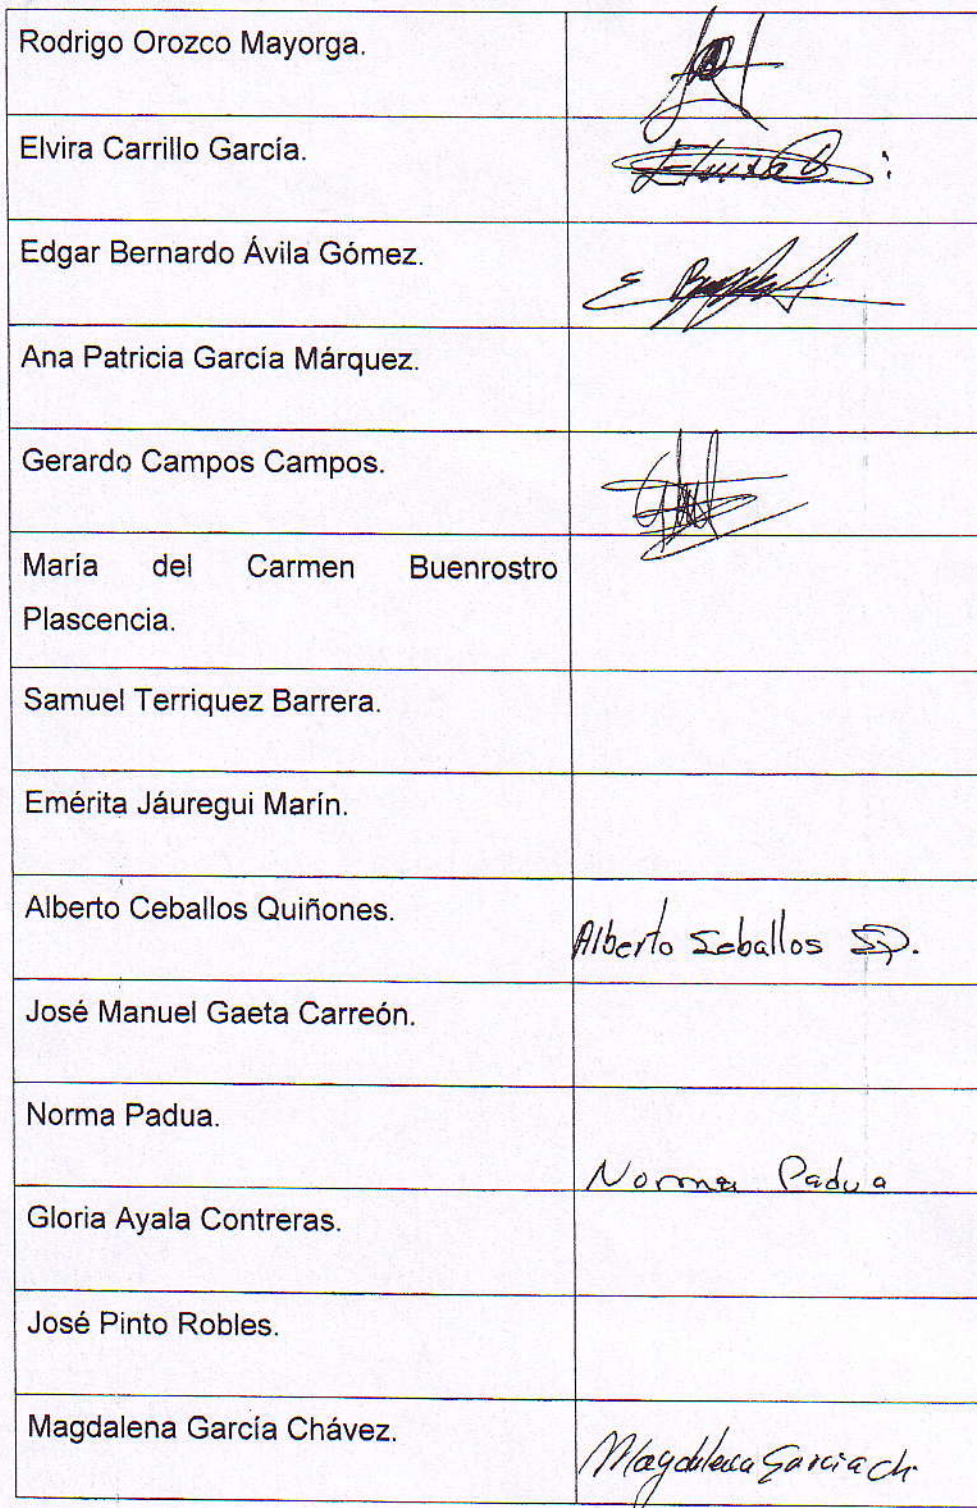 Rodrigo Orozco Mayorga.
Elvira Carrillo García.
Edgar Bernardo Ávila Gómez.
Ana Patricia García Márquez.
Gerardo Campos Campos.
María del Carmen Buenrostro
Plascencia.
Samuel Terriquez Barrera.
Emérita Jáuregui Marín.
Alberto Ceballos Quiñones.
Alberto Seballos
José Manuel Gaeta Carreón.
Norma Padua.
Norma Padua
Gloria Ayala Contreras.
José Pinto Robles.
Magdalena García Chávez.
Magdalena Garcia ch.